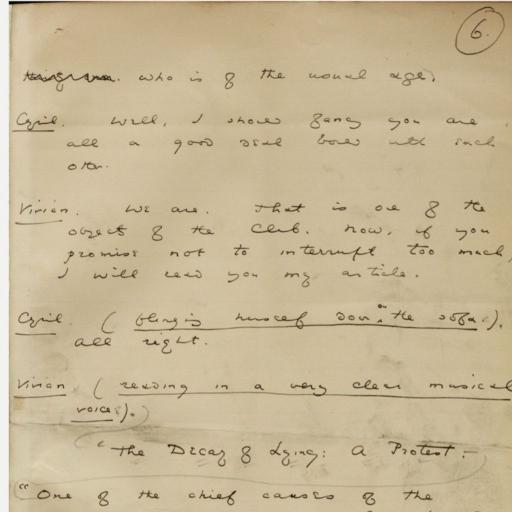 6.
who is of the usual age.
Cyril. Well, I should fancy you are
all a good deal bored with each
other.
Vivian. We are. That is one of the
objects of the Club. Now, if you
promise not to interrupt too much,
I will read you my article.
Cyril. (flinging himself down on the sofa.).
all right.
Vivian (reading in a very clear musical
voice).
"The Decay of Lying: A Protest.-
"One of the chief causes of the